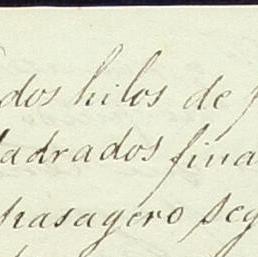 dos hilos de
adrados fina
pasagero seg